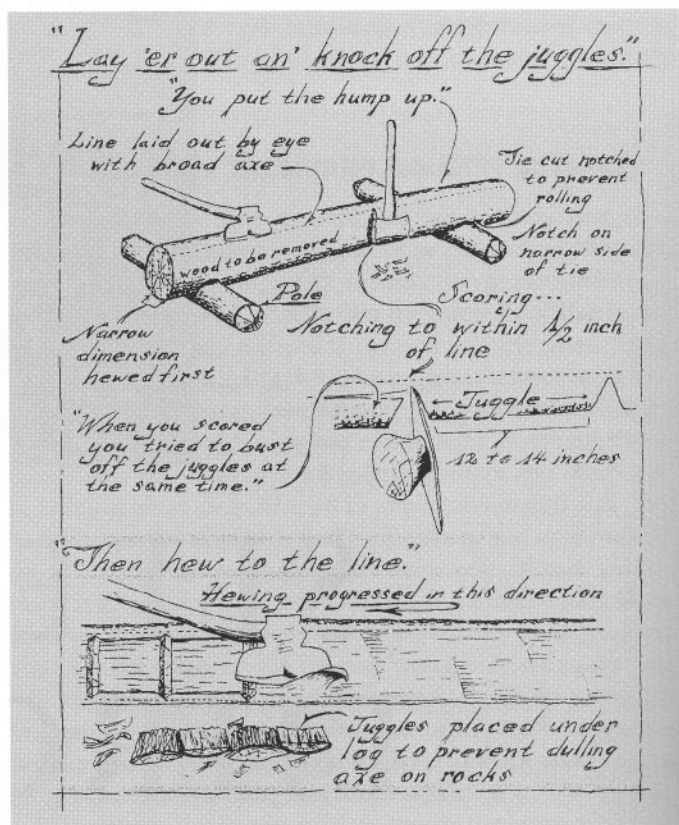 "Lay 'er out an' knock off the juggles."
"You put the hump up."
Line laid out by eye
with broad axe
Tie cut notched
to prevent
rolling
Notch on
narrow side
of tie
wood to be removed
Pole
Narrow
dimension
hewed first
Scoring...
Notching to within 1/2 inch
of line
Juggle
12 to 14 inches
"When you scored
you tried to bust
off the juggles at
the same time."
"Then hew to the line."
Hewing progressed in this direction
Juggles placed under
log to prevent dulling
axe on rocks